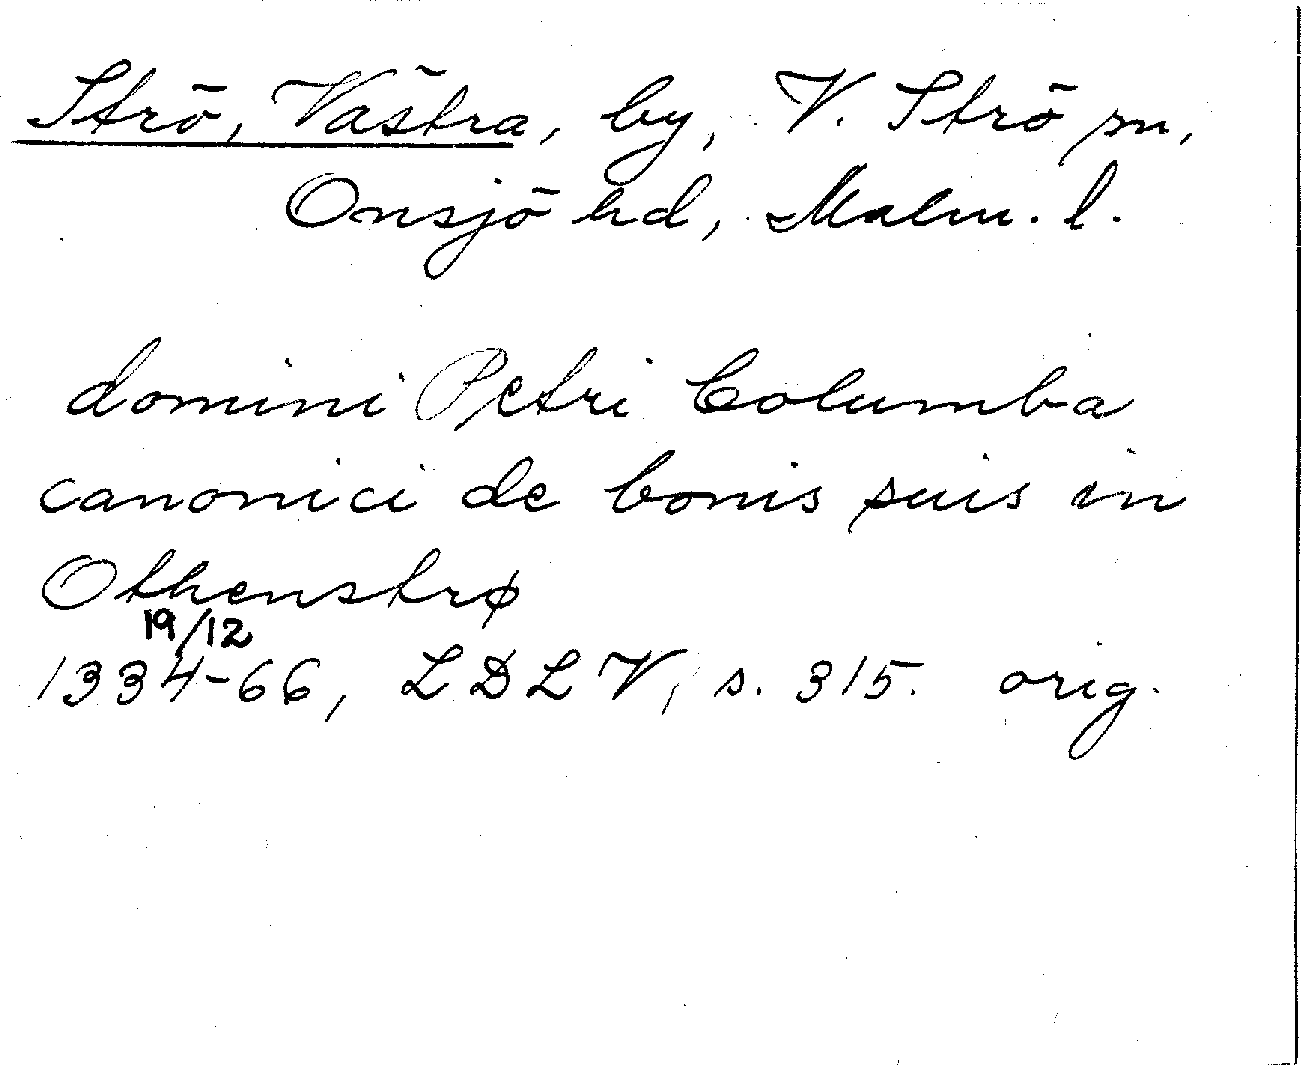 Strö, Västra, by, V. Strö sn,
Onsjö hd, Malm. l.
domini Petri Columba
canonici de bonis suis in
Othenstrø
19/12
1334-66, LDLV, s. 315. orig.